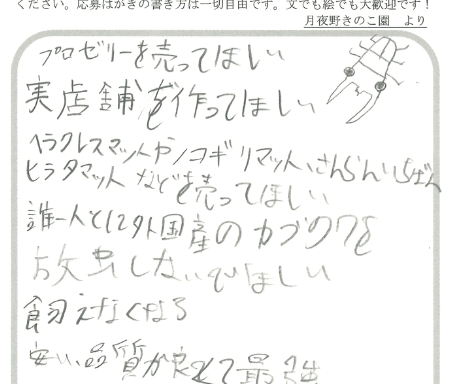 ください。応募はがきの書き方は一切自由です。文でも絵でも大歓迎です!
月夜野きのこ園 より
プロゼリーを売ってほしい
実店舗を作ってほしい
ヘラクレスマットやノコギリマット、さんらんいちばん
ヒラタマットなどを売ってほしい
誰一人として外国産のカブクワを
放虫しないでほしい
飼えなくなる
安い、品質が良くて最